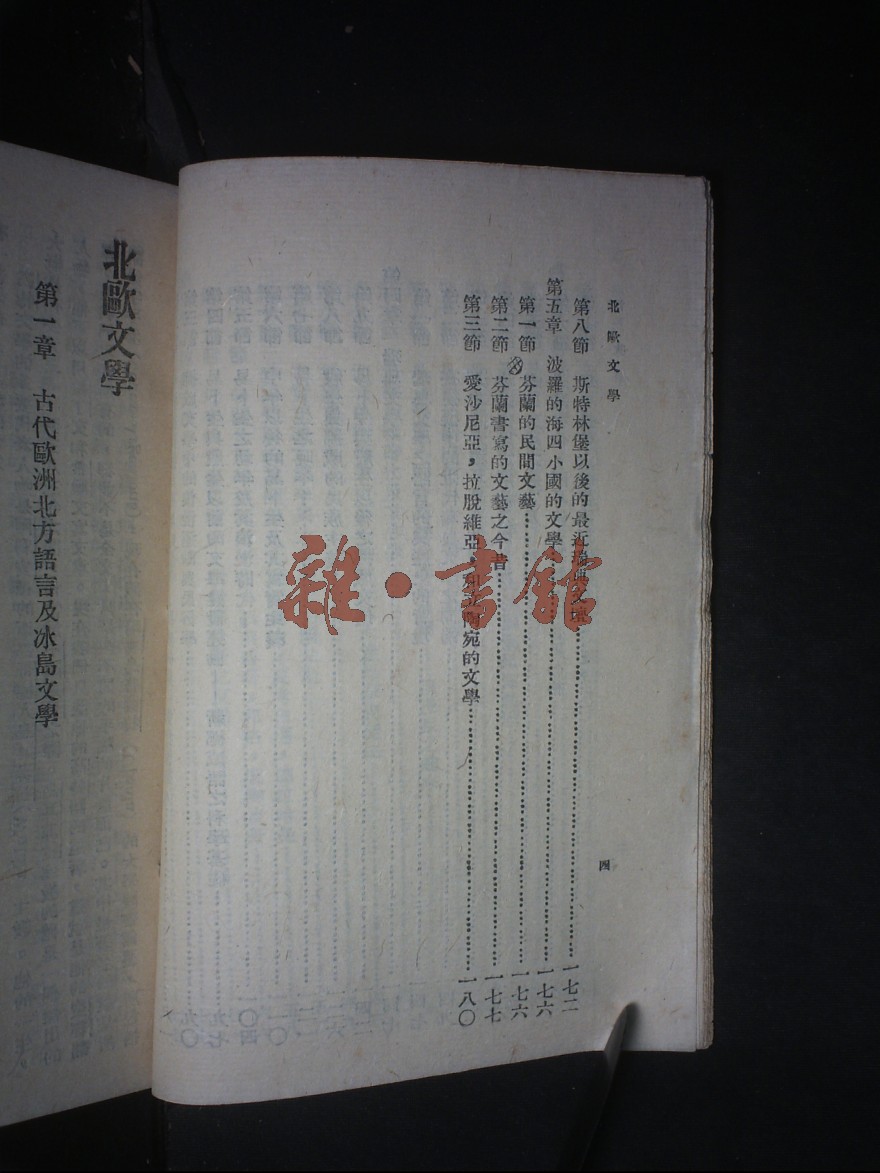 北歐文學
第八節 斯特林堡以後的最近瑞典文壇……一七二
第五章 波羅的海四小國的文學……一七六
第一節 芬蘭的民間文藝……一七六
第二節 芬蘭書寫的文藝之今昔……一七七
第三節 愛沙尼亞,拉脫維亞,列立陶宛的文學……一八〇
四
北歐文學
第一章 古代歐洲北方語言及冰島文學
雜·書館